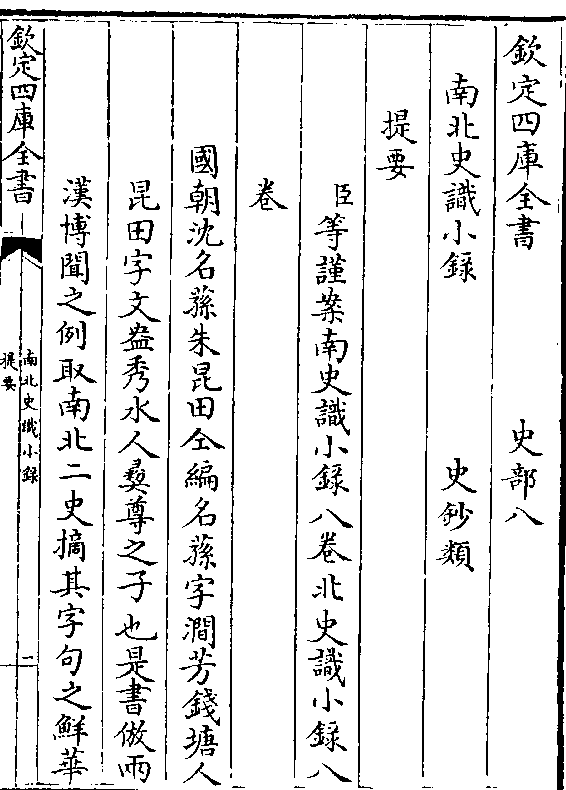 欽定四庫全書　史部八
南北史識小錄　史鈔類
提要
臣等謹案南史識小錄八卷北史識小錄八
卷
國朝沈名蓀朱昆田仝編名蓀字澗芳錢塘人
昆田字文盎秀水人彛尊之子也是書倣兩
漢博聞之例取南北二史摘其字句之鮮華
欽定四庫全書
南北史識小錄
提要
二